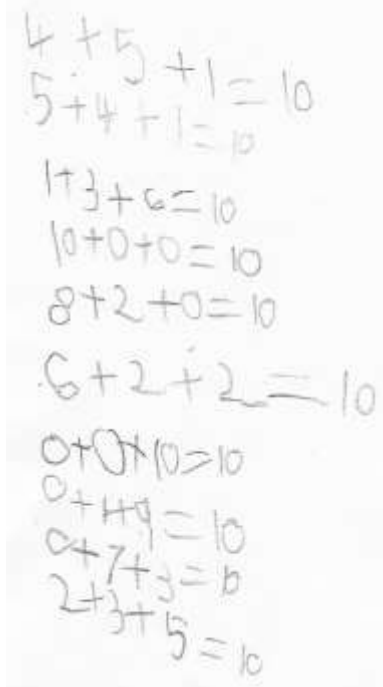 4 + 5 + 1 = 10
5 + 4 + 1 = 10
1 + 3 + 6 = 10
10 + 0 + 0 = 10
8 + 2 + 0 = 10
6 + 2 + 2 = 10
0 + 0 + 10 = 10
0 + 1 + 9 = 10
0 + 7 + 3 = 10
2 + 3 + 5 = 10